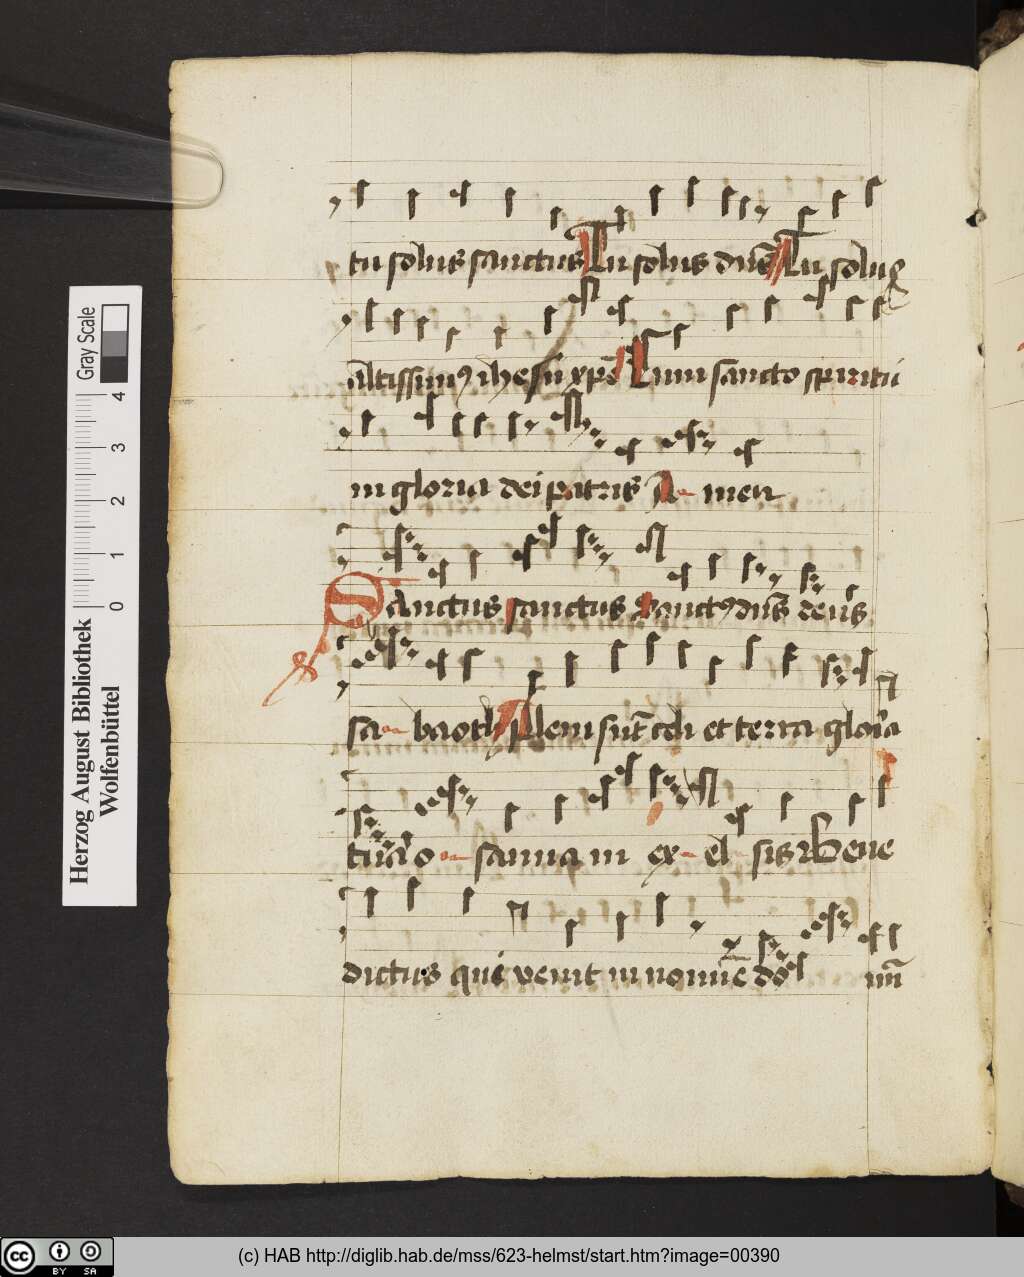 tu solus sanctus Tu solus dn̄s Tu solus
altissimꝰ ihesu xp̄e Cum sancto spiritu
in gloria dei patris A- men
Sanctus sanctus Sanctꝰ dn̄s deus
sa- baoth Pleni sūt celi et terra gloria
tua o- sanna in ex- cel sis Bene
dictus qui venit in nomīe do mī
Herzog August Bibliothek
Wolfenbüttel
Gray Scale
0 1 2 3 4
cc BY SA
(c) HAB http://diglib.hab.de/mss/623-helmst/start.htm?image=00390